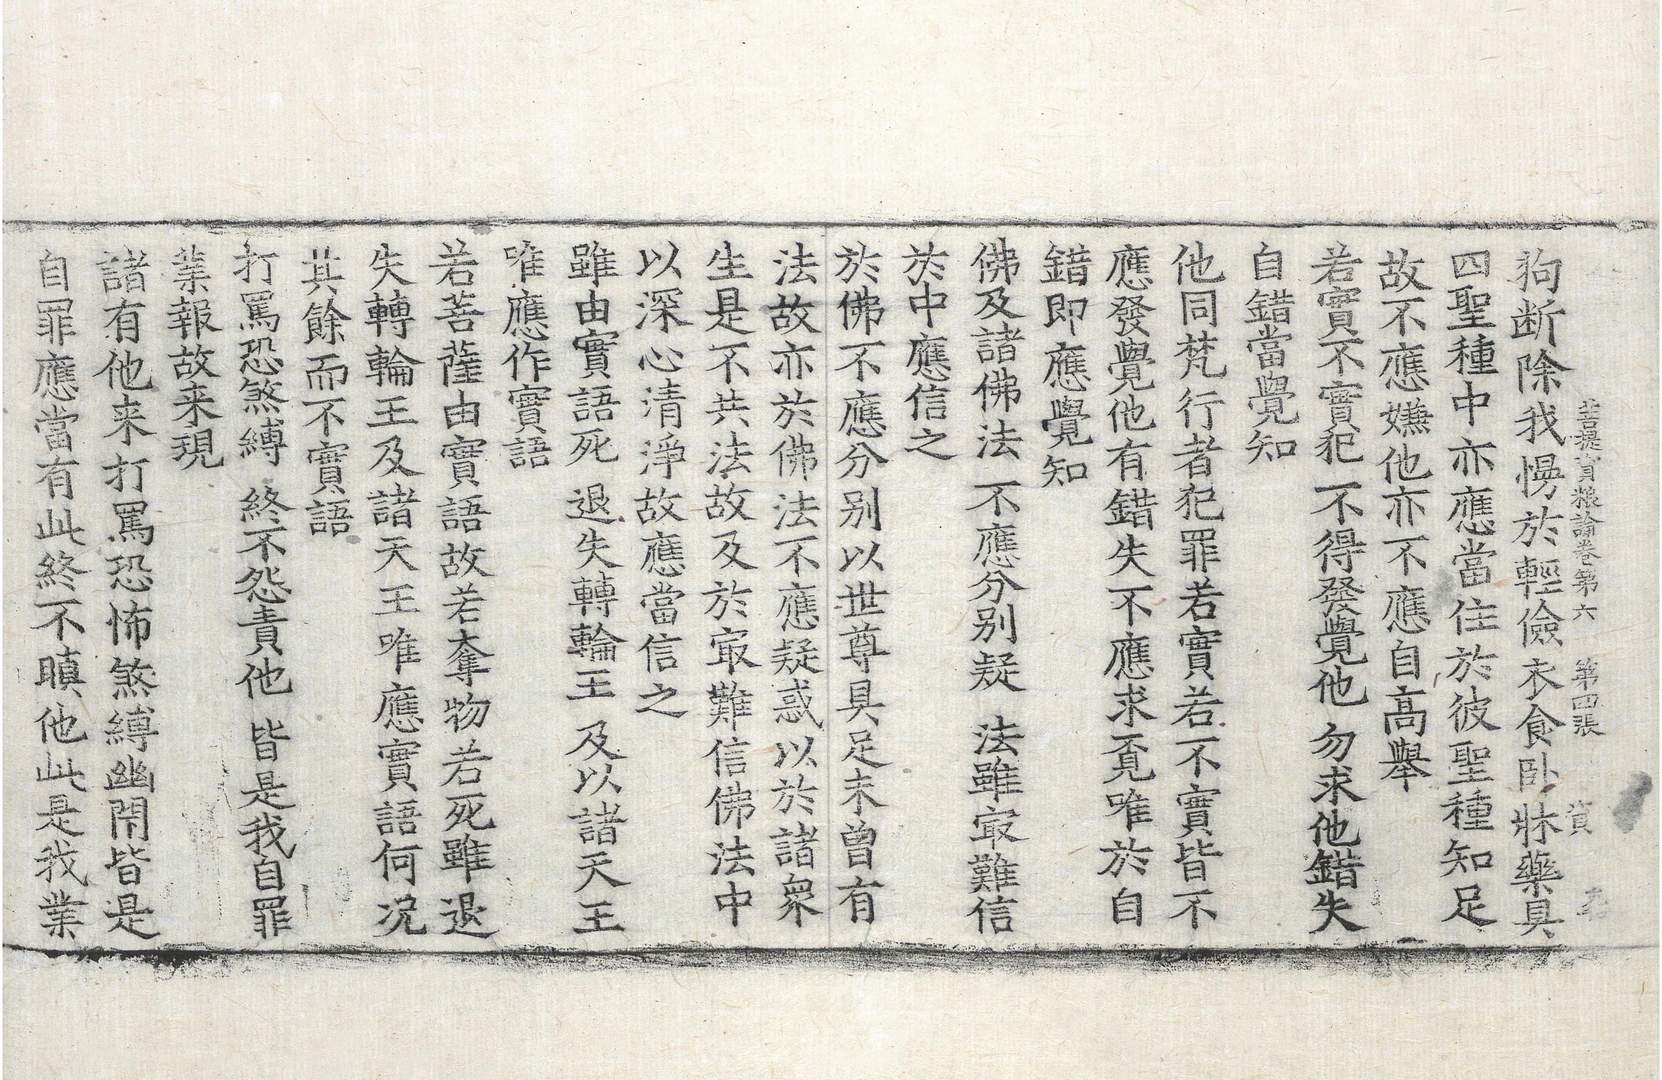 菩提資粮論卷第六 第四張 資
狗断除我慢於輕儉衣食卧牀藥具
四聖種中亦應當住於彼聖種知足
故不應嫌他亦不應自高舉
若實不實犯 不得發覺他 勿求他錯失
自錯當覺知
他同梵行者犯罪若實若不實皆不
應發覺他有錯失不應求覓唯於自
錯即應覺知
佛及諸佛法 不應分别疑 法雖㝡難信
於中應信之
於佛不應分别以世尊具足未曾有
法故亦於佛法不應疑惑以於諸衆
生是不共法故及於㝡難信佛法中
以深心清淨故應當信之
雖由實語死 退失轉輪王 及以諸天王
唯應作實語
若菩薩由實語故若奪物若死雖退
失轉輪王及諸天王唯應實語何况
其餘而不實語
打罵恐煞縛 終不怨責他 皆是我自罪
業報故来現
諸有他来打罵恐怖煞縛幽閇皆是
自罪應當有此終不瞋他此是我業